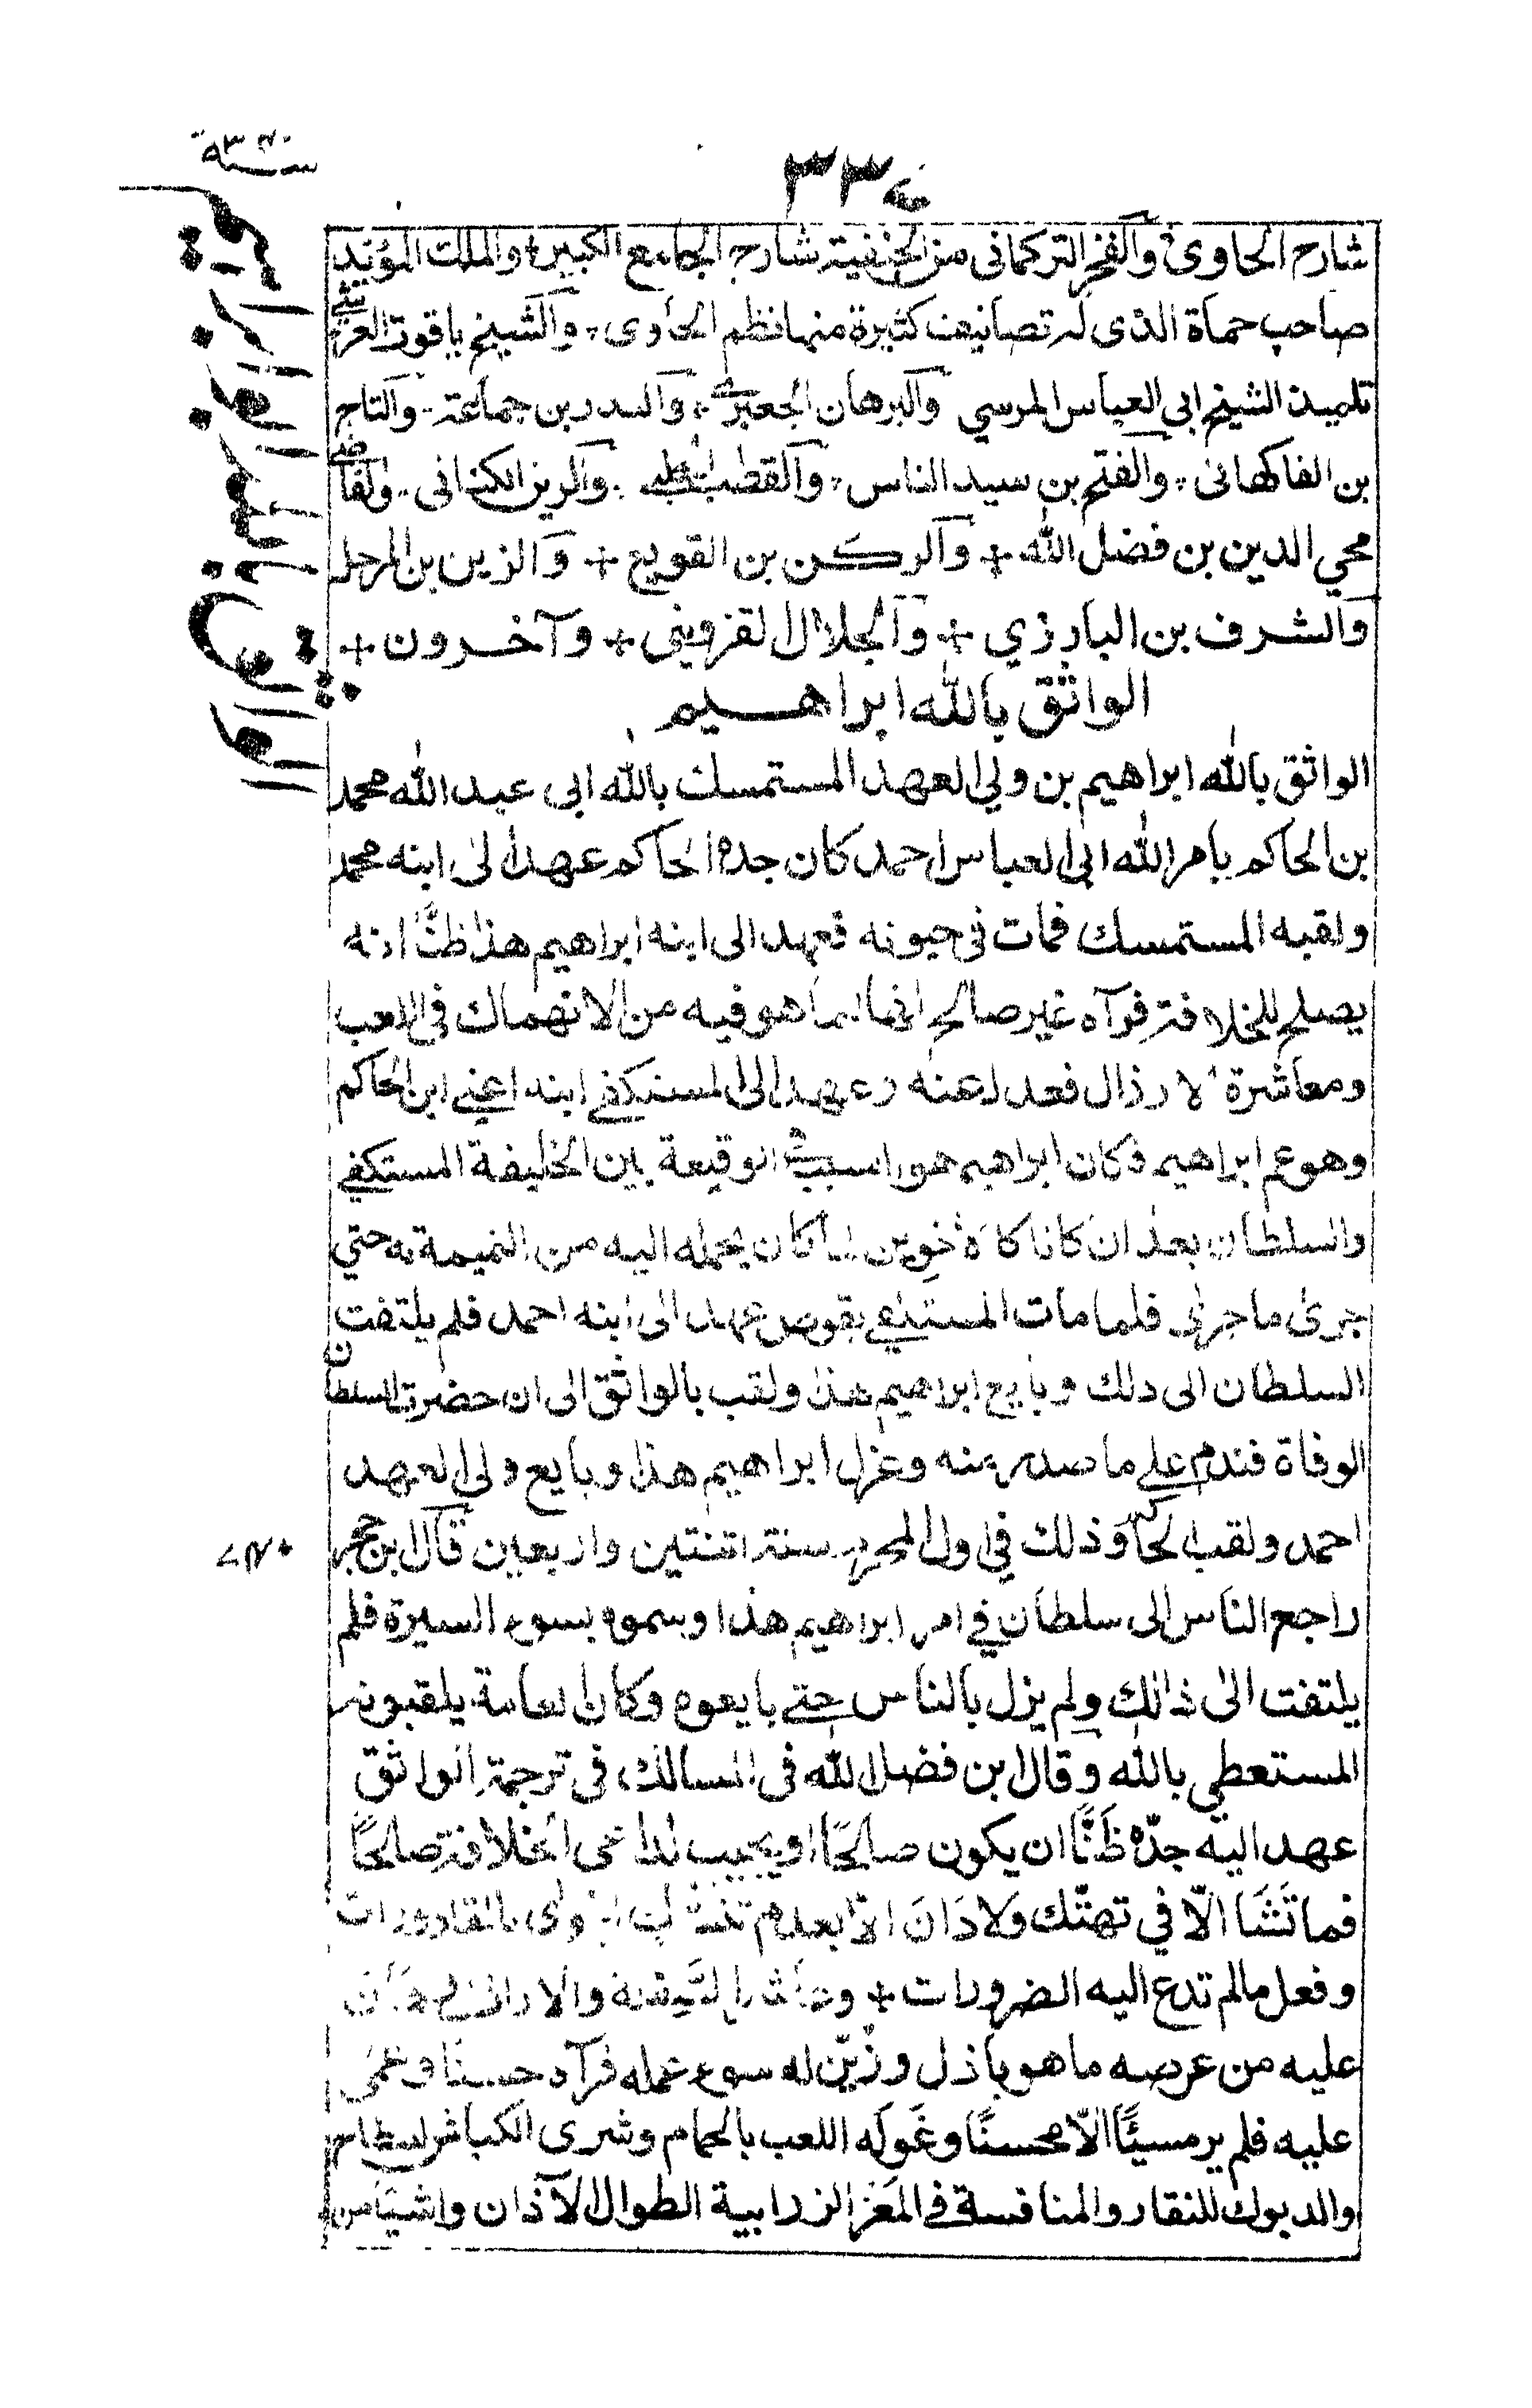 ٣٣٤
شارح الحاوی والفخر الترکمانی من الحنفیة شارح الجامع الکبیر + والملك المؤید
صاحب حماة الذی له تصانیف کثیرة منها نظم الحاوی والشیخ یاقوت العرشی
تلمیذ الشیخ ابی العباس المرسی والبرهان الجعبری والبدر بن جماعة والتاج
بن الفاکهانی والفتح بن سید الناس والقطب الحلبی والزین الکنانی والقاضی
محی الدین بن فضل الله + والرکن بن القویع + والزین بن المرحل
والشرف بن البارزی + والجلال القزوینی + وآخرون +
الواثق بالله ابراهیم
الواثق بالله ابراهیم بن ولی العهد المستمسك بالله ابی عبد الله محمد
بن الحاکم بامر الله ابی العباس احمد کان جده الحاکم عهد الی ابنه محمد
ولقبه المستمسك فمات فی حیوته فعهد الی ابنه ابراهیم هذا ظنًّا انه
یصلح للخلافة فرآه غیر صالح لها لما هو فیه من الانهماك فی اللعب
ومعاشرة الارذال فعدل عنه وعهد الی المستکفی ابنه اعنی ابن الحاکم
وهو عم ابراهیم وکان ابراهیم هو السبب فی الوقیعة بین الخلیفة المستکفی
والسلطان بعد ان کانا کالاخوین لما کان یحمله الیه من النمیمة به حتی
جری ما جری فلما مات المستکفی بقوص عهد الی ابنه احمد فلم یلتفت
السلطان الی ذلك وبایع ابراهیم هذا ولقب بالواثق الی ان حضرت السلطان
الوفاة فندم علی ما صدر منه وعزل ابراهیم هذا وبایع ولی العهد
احمد ولقب الحاکم وذلك فی اول المحرم سنة اثنتین واربعین قال ابن حجر
راجع الناس الی سلطان فی امر ابراهیم هذا وسموه بسوء السیرة فلم
یلتفت الی ذلك ولم یزل بالناس حتی بایعوه وکان العامة یلقبونه
المستعطی بالله وقال ابن فضل الله فی المسالك فی ترجمة الواثق
عهد الیه جدّه ظَنًّا ان یکون صالحًا او یجیب لداعی الخلافة صالحًا
فما نَشَا الّا فی تهتّك وَلا دَانَ الّا بعد بالقاذورات
وفعل مالم تدع الیه الضرورات + وعاشر السفلة والاراذل وهان
علیه من عرضه ما هو باذل وزُیّن له سوء عمله فرآه حسنًا وعمی
علیه فلم یر مسیئًا الّا محسنًا وغوله اللعب بالحمام وشری الکباش للنطاح
والدیوك للنقار والمنافسة فی المعز الزرابیة الطوال الآذان واشیَا من